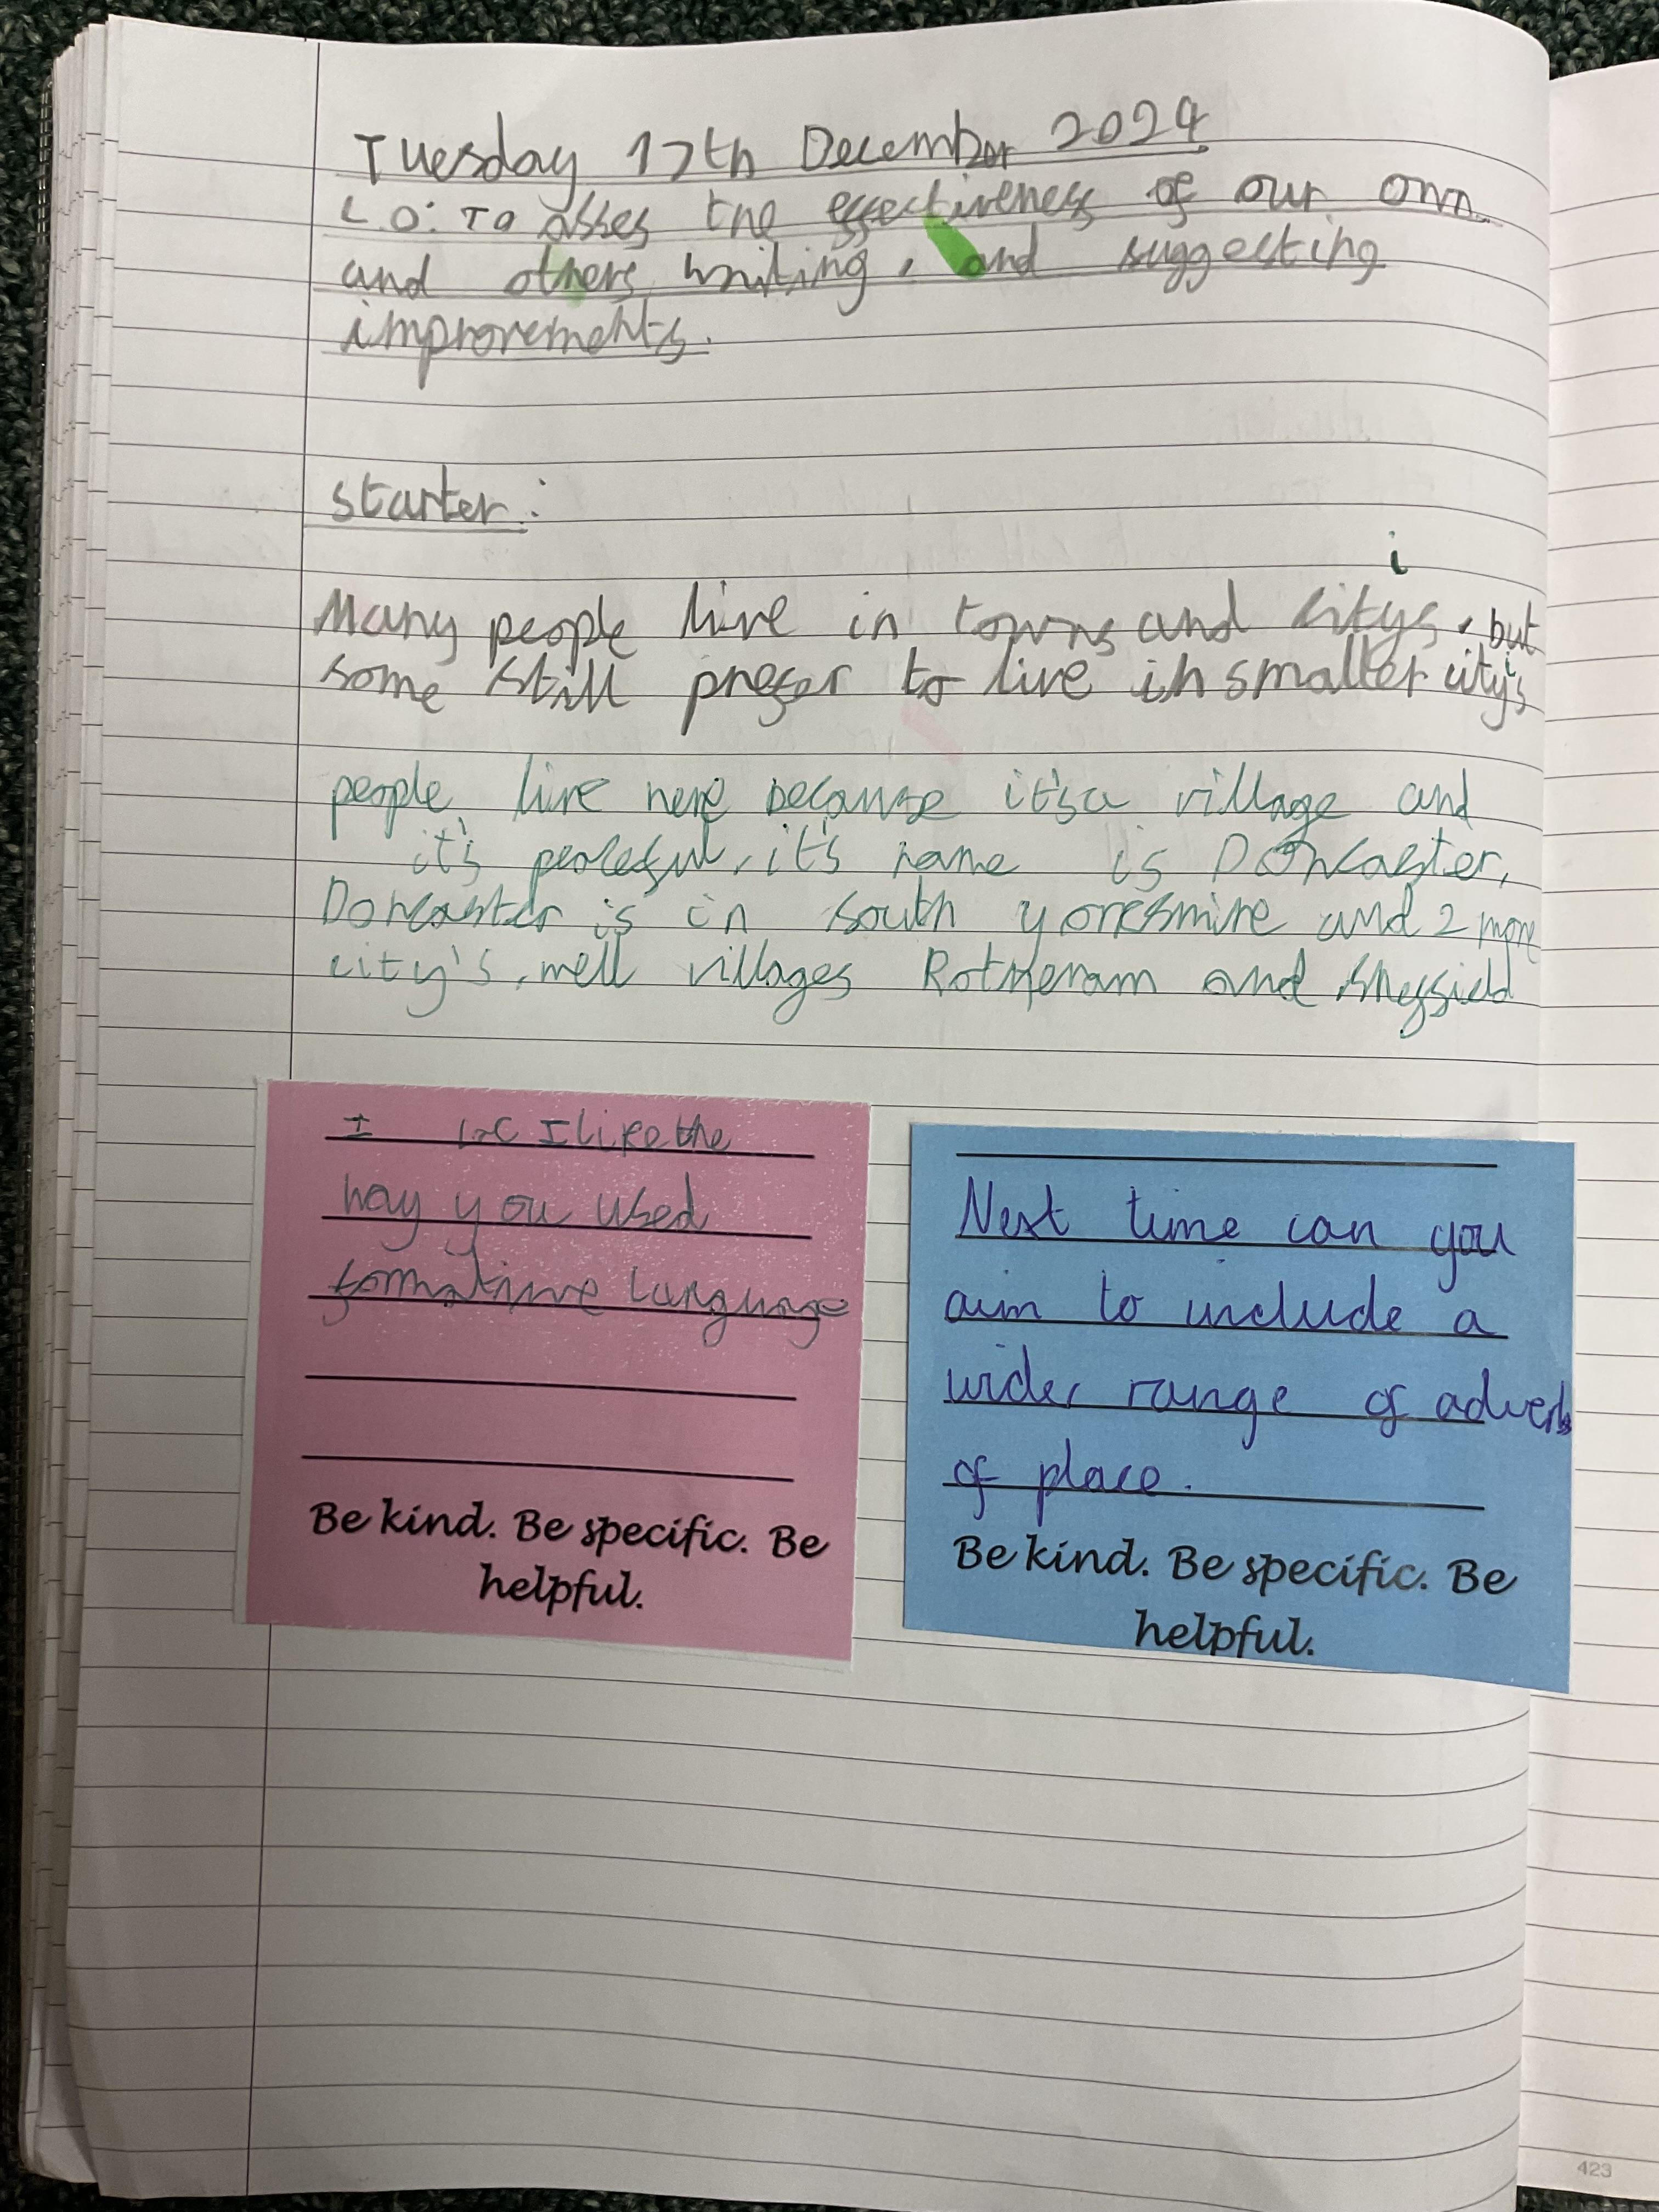 Tuesday 17th December 2024
LO: To asses the effectiveness of our own
and others writing, and suggesting
improvements.
starter:
i
Many people live in towns and citys, but
some still prefer to live in smaller city's
i
people live here because it's a village and
it's peacleful, it's name is Doncaster,
Doncaster is in south yoreshire and 2 more
city's, well villages Rotheram and sheffield
I I like the
way you used
formative language
Be kind. Be specific. Be
helpful.
Next time can you
aim to include a
wider range of adverbs
of place.
Be kind. Be specific. Be
helpful.
423